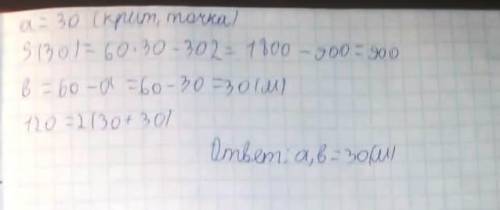 a = 30 (крит, точка)
S(30) = 60·30 - 302 = 1800 - 900 = 900
в = 60 - a = 60 - 30 = 30 (м)
120 = 2(30 + 30)
Ответ: a, в = 30(м)